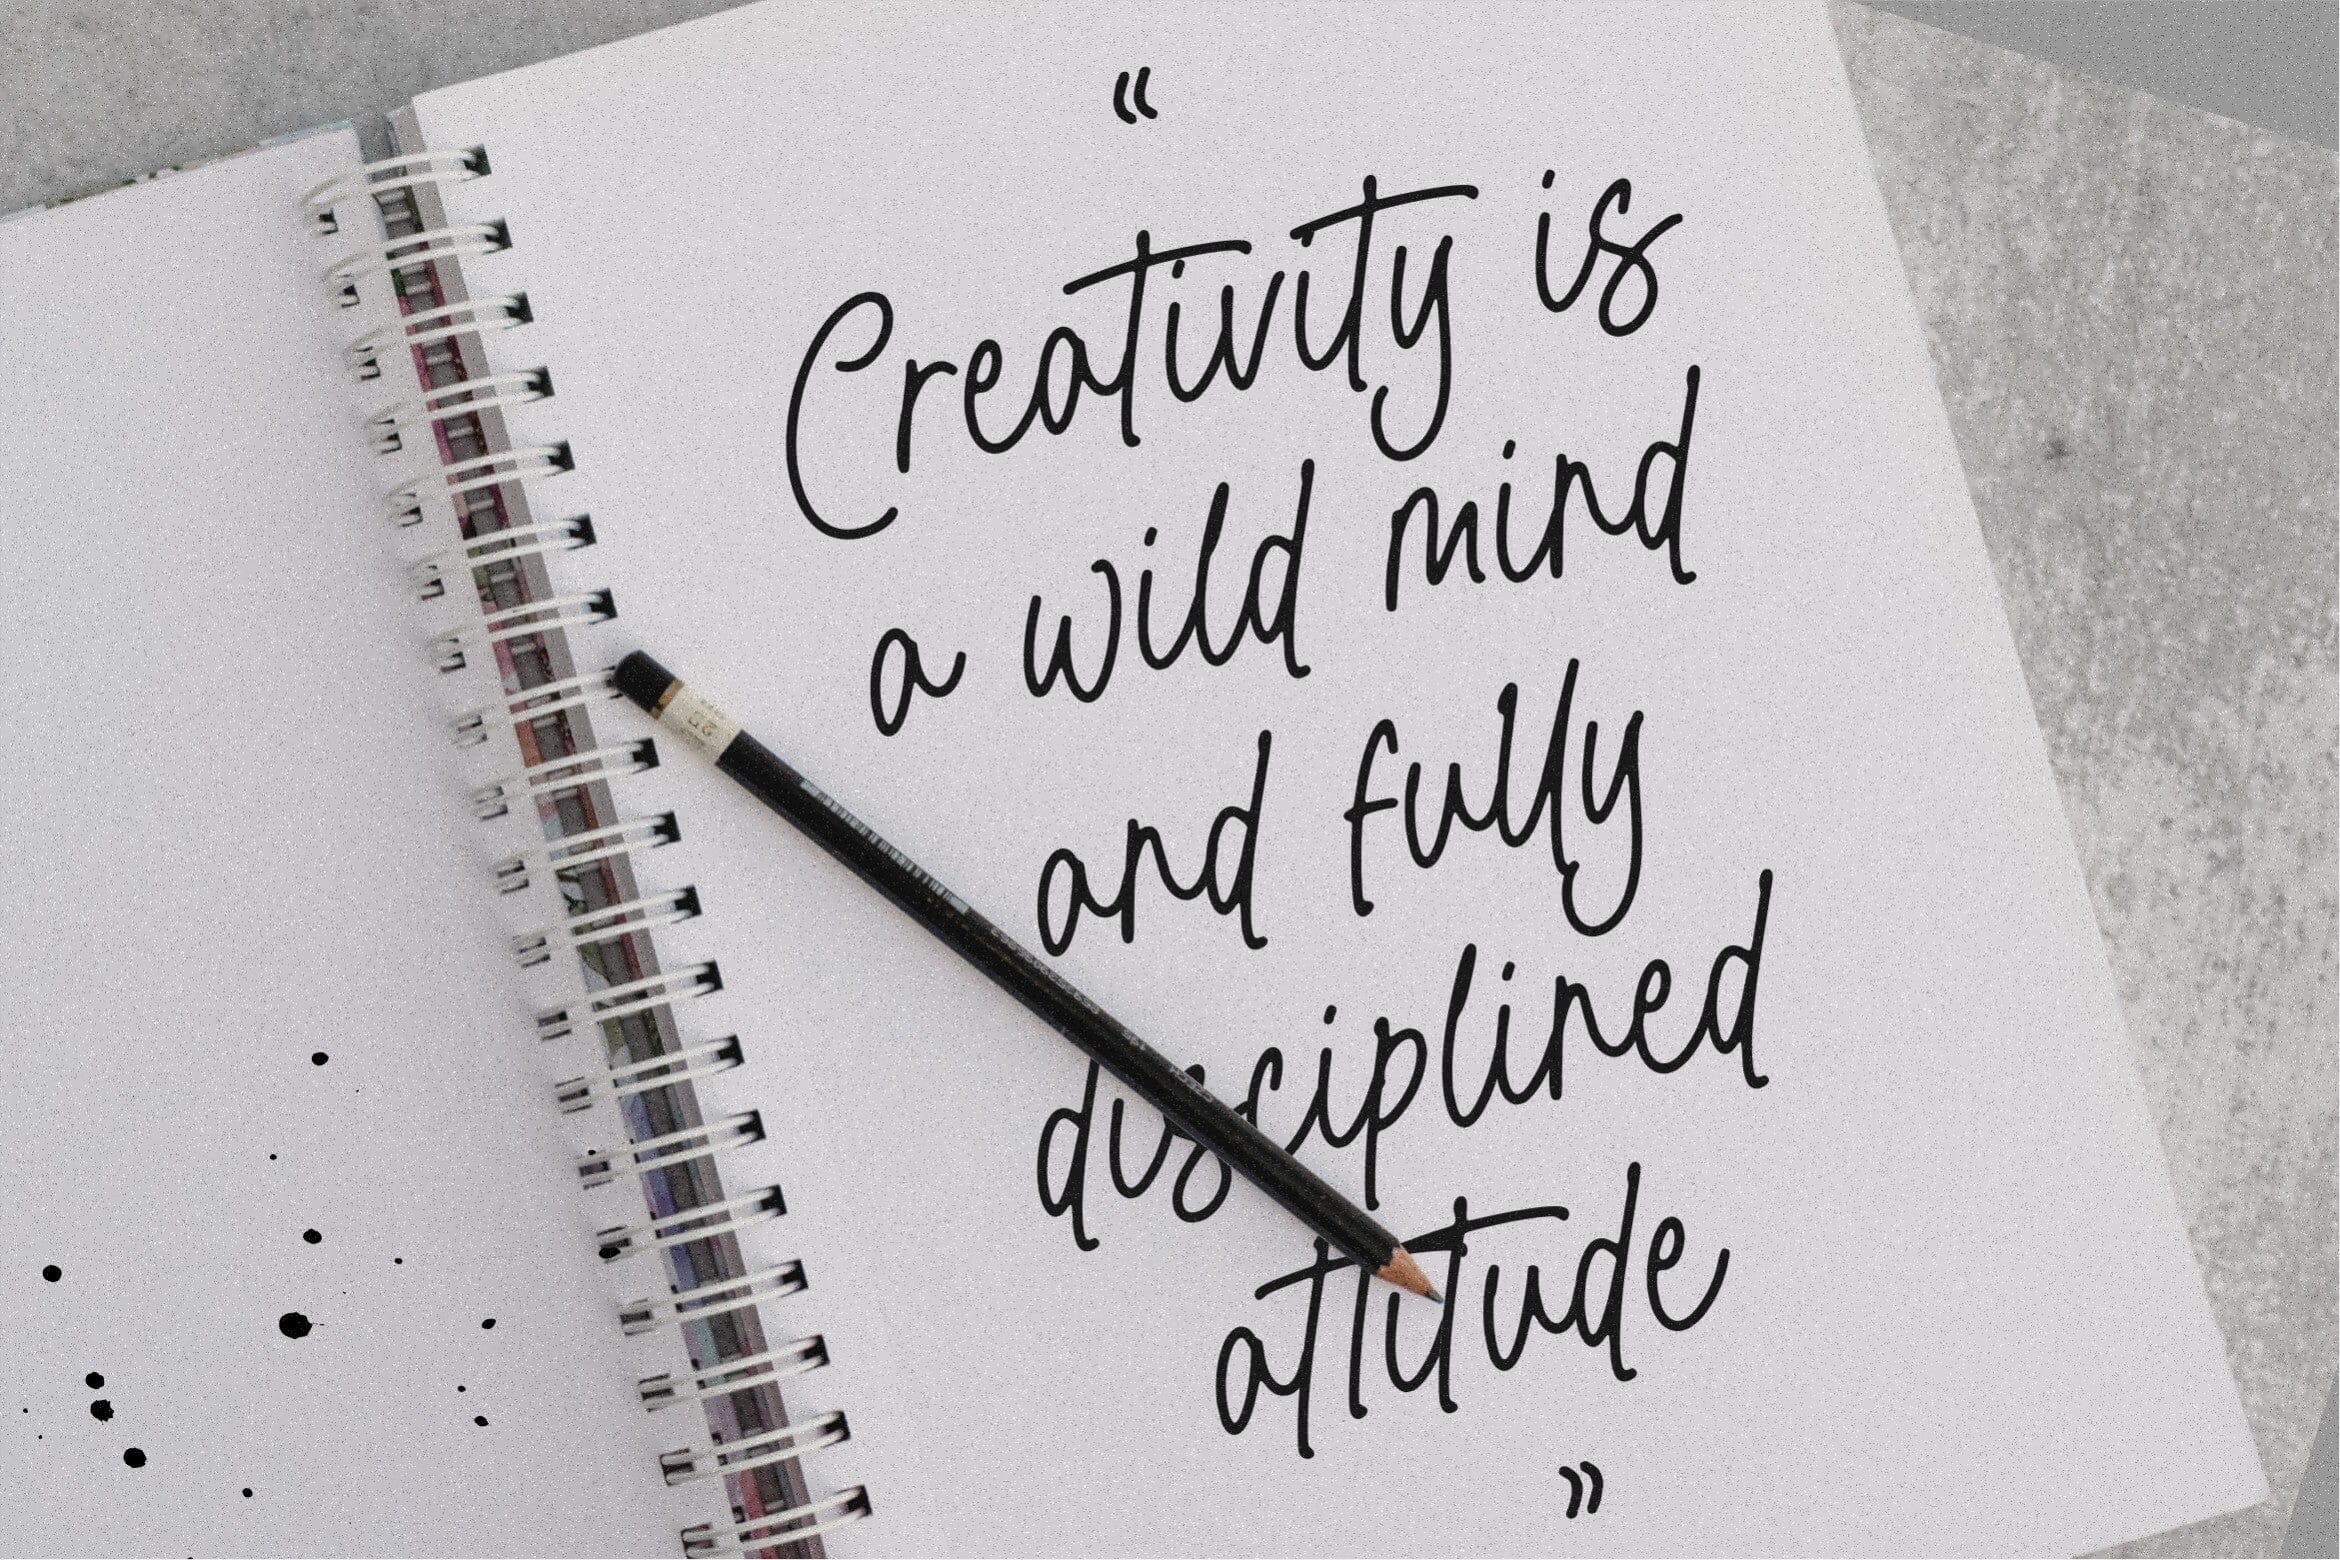 “
Creativity is
a wild mind
and fully
disciplined
attitude
”